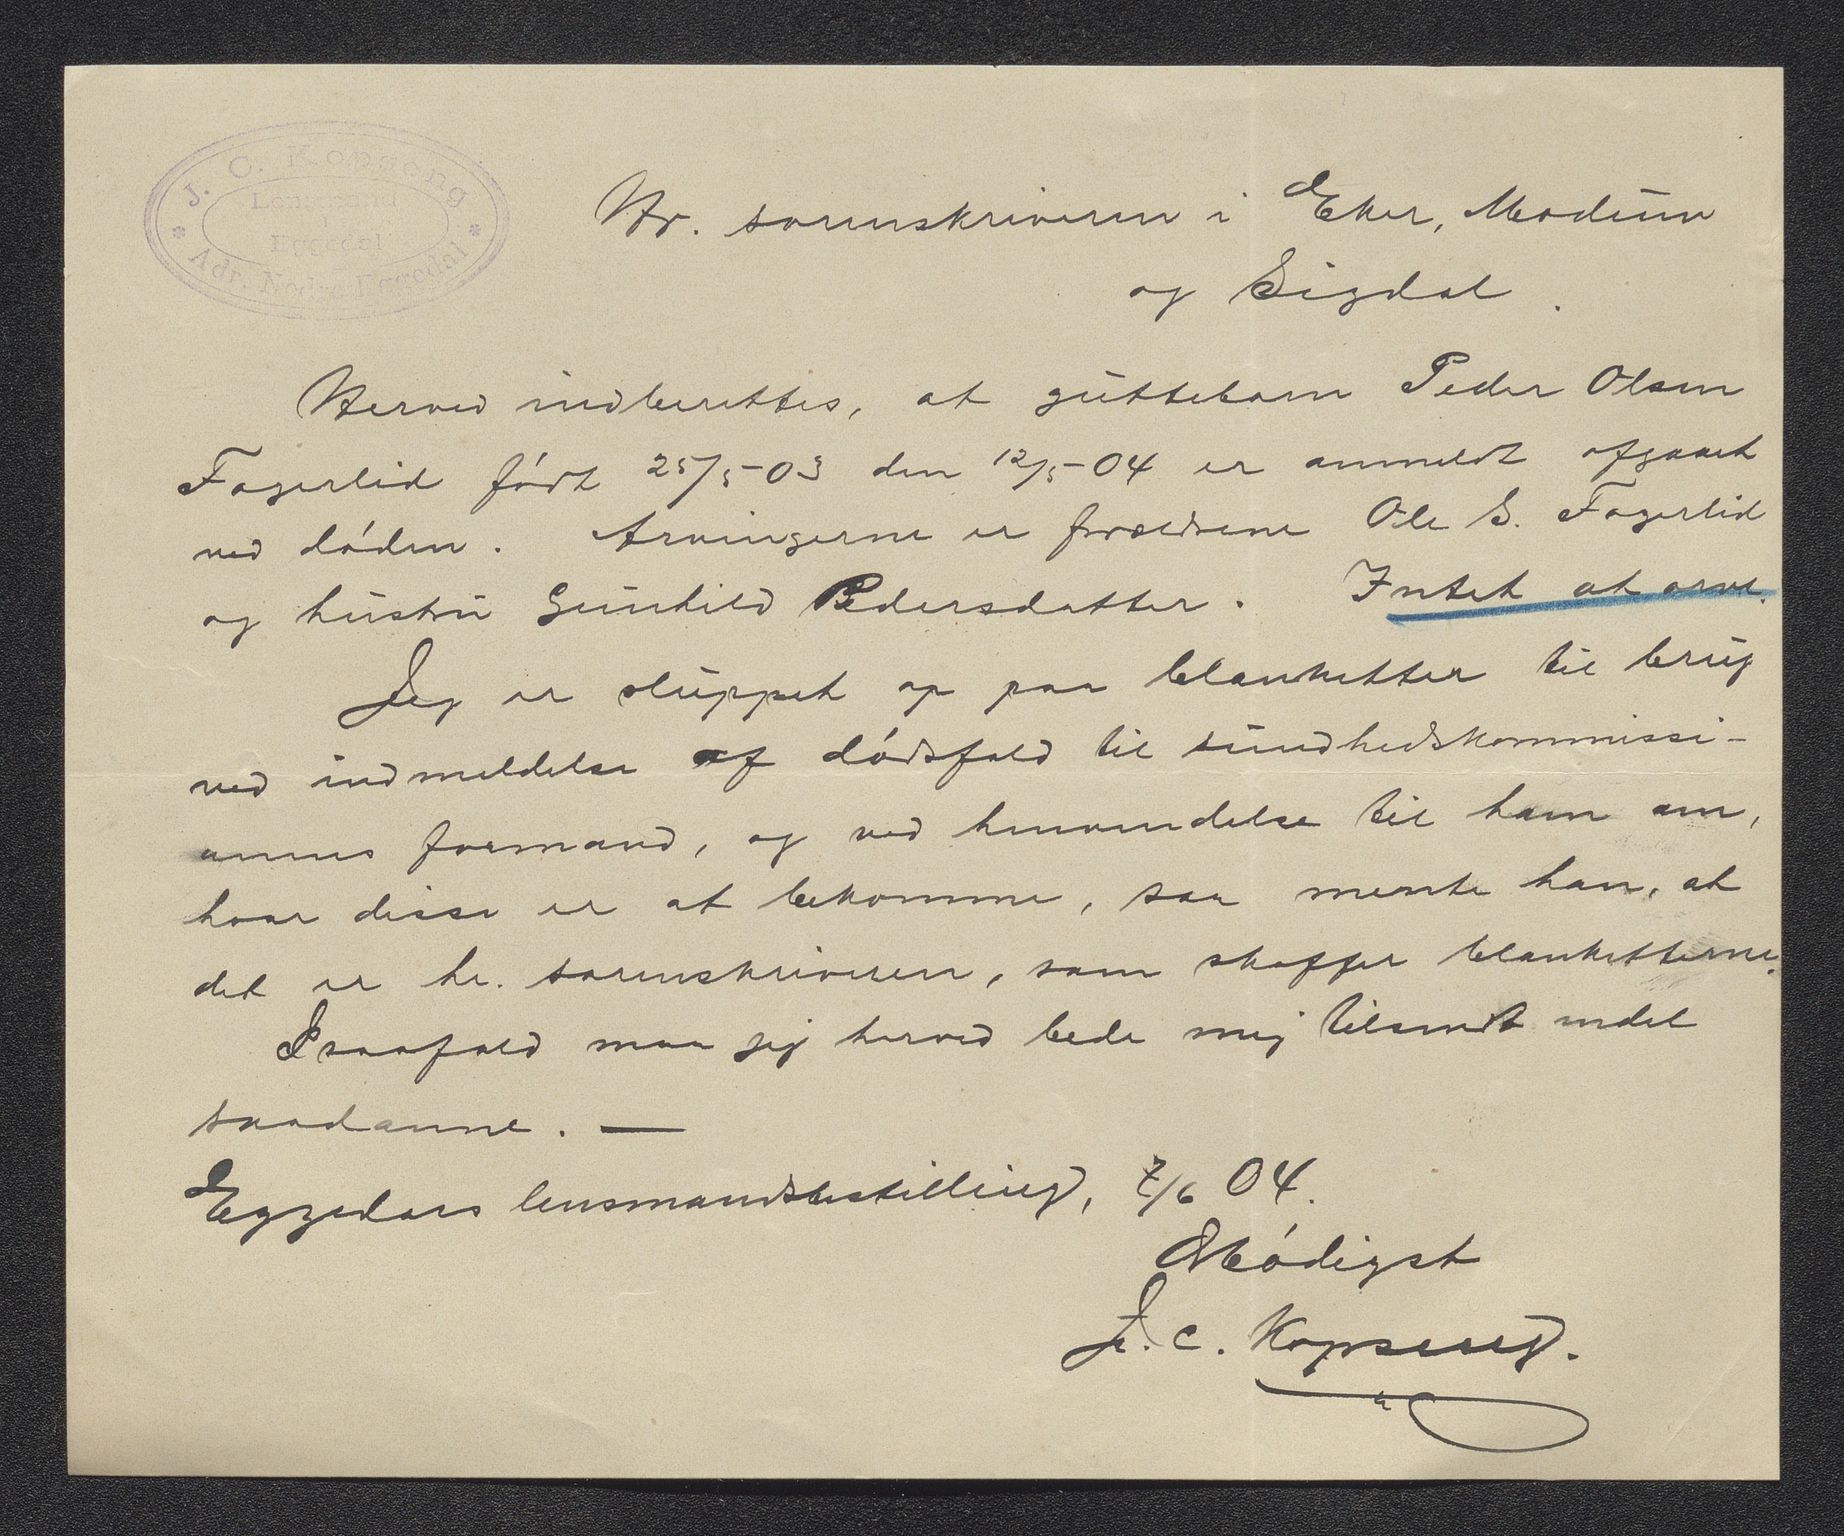 J. C. Kopseng
Lensmand
i
Eggedal
Adr. Nedre Eggedal
Hr. sorenskriveren i Eker, Modum
og Sigdal.
Herved indberettes, at guttebarn Peder Olsen
Fagerlid født 25/5-03 den 12/5-04 er anmeldt afgaaet
ved døden. Arvingerne er forældrene Ole S. Fagerlid
og hustru Gunhild Pedersdatter. Intet at arve.
Jeg er sluppet op paa blanketter til brug
ved indmeldelse af dødsfald til sundhedskommissi-
onens formand, og ved henvendelse til ham om,
hvor disse er at bekomme, saa mente han, at
det er hr. sorenskriveren, som skaffer blanketterne.
I saafald maa jeg herved bede mig tilsendt endel
saadanne. —
Eggedals lensmandsbestilling, 7/6 04.
Ærbødigst
J. C. Kopseng.